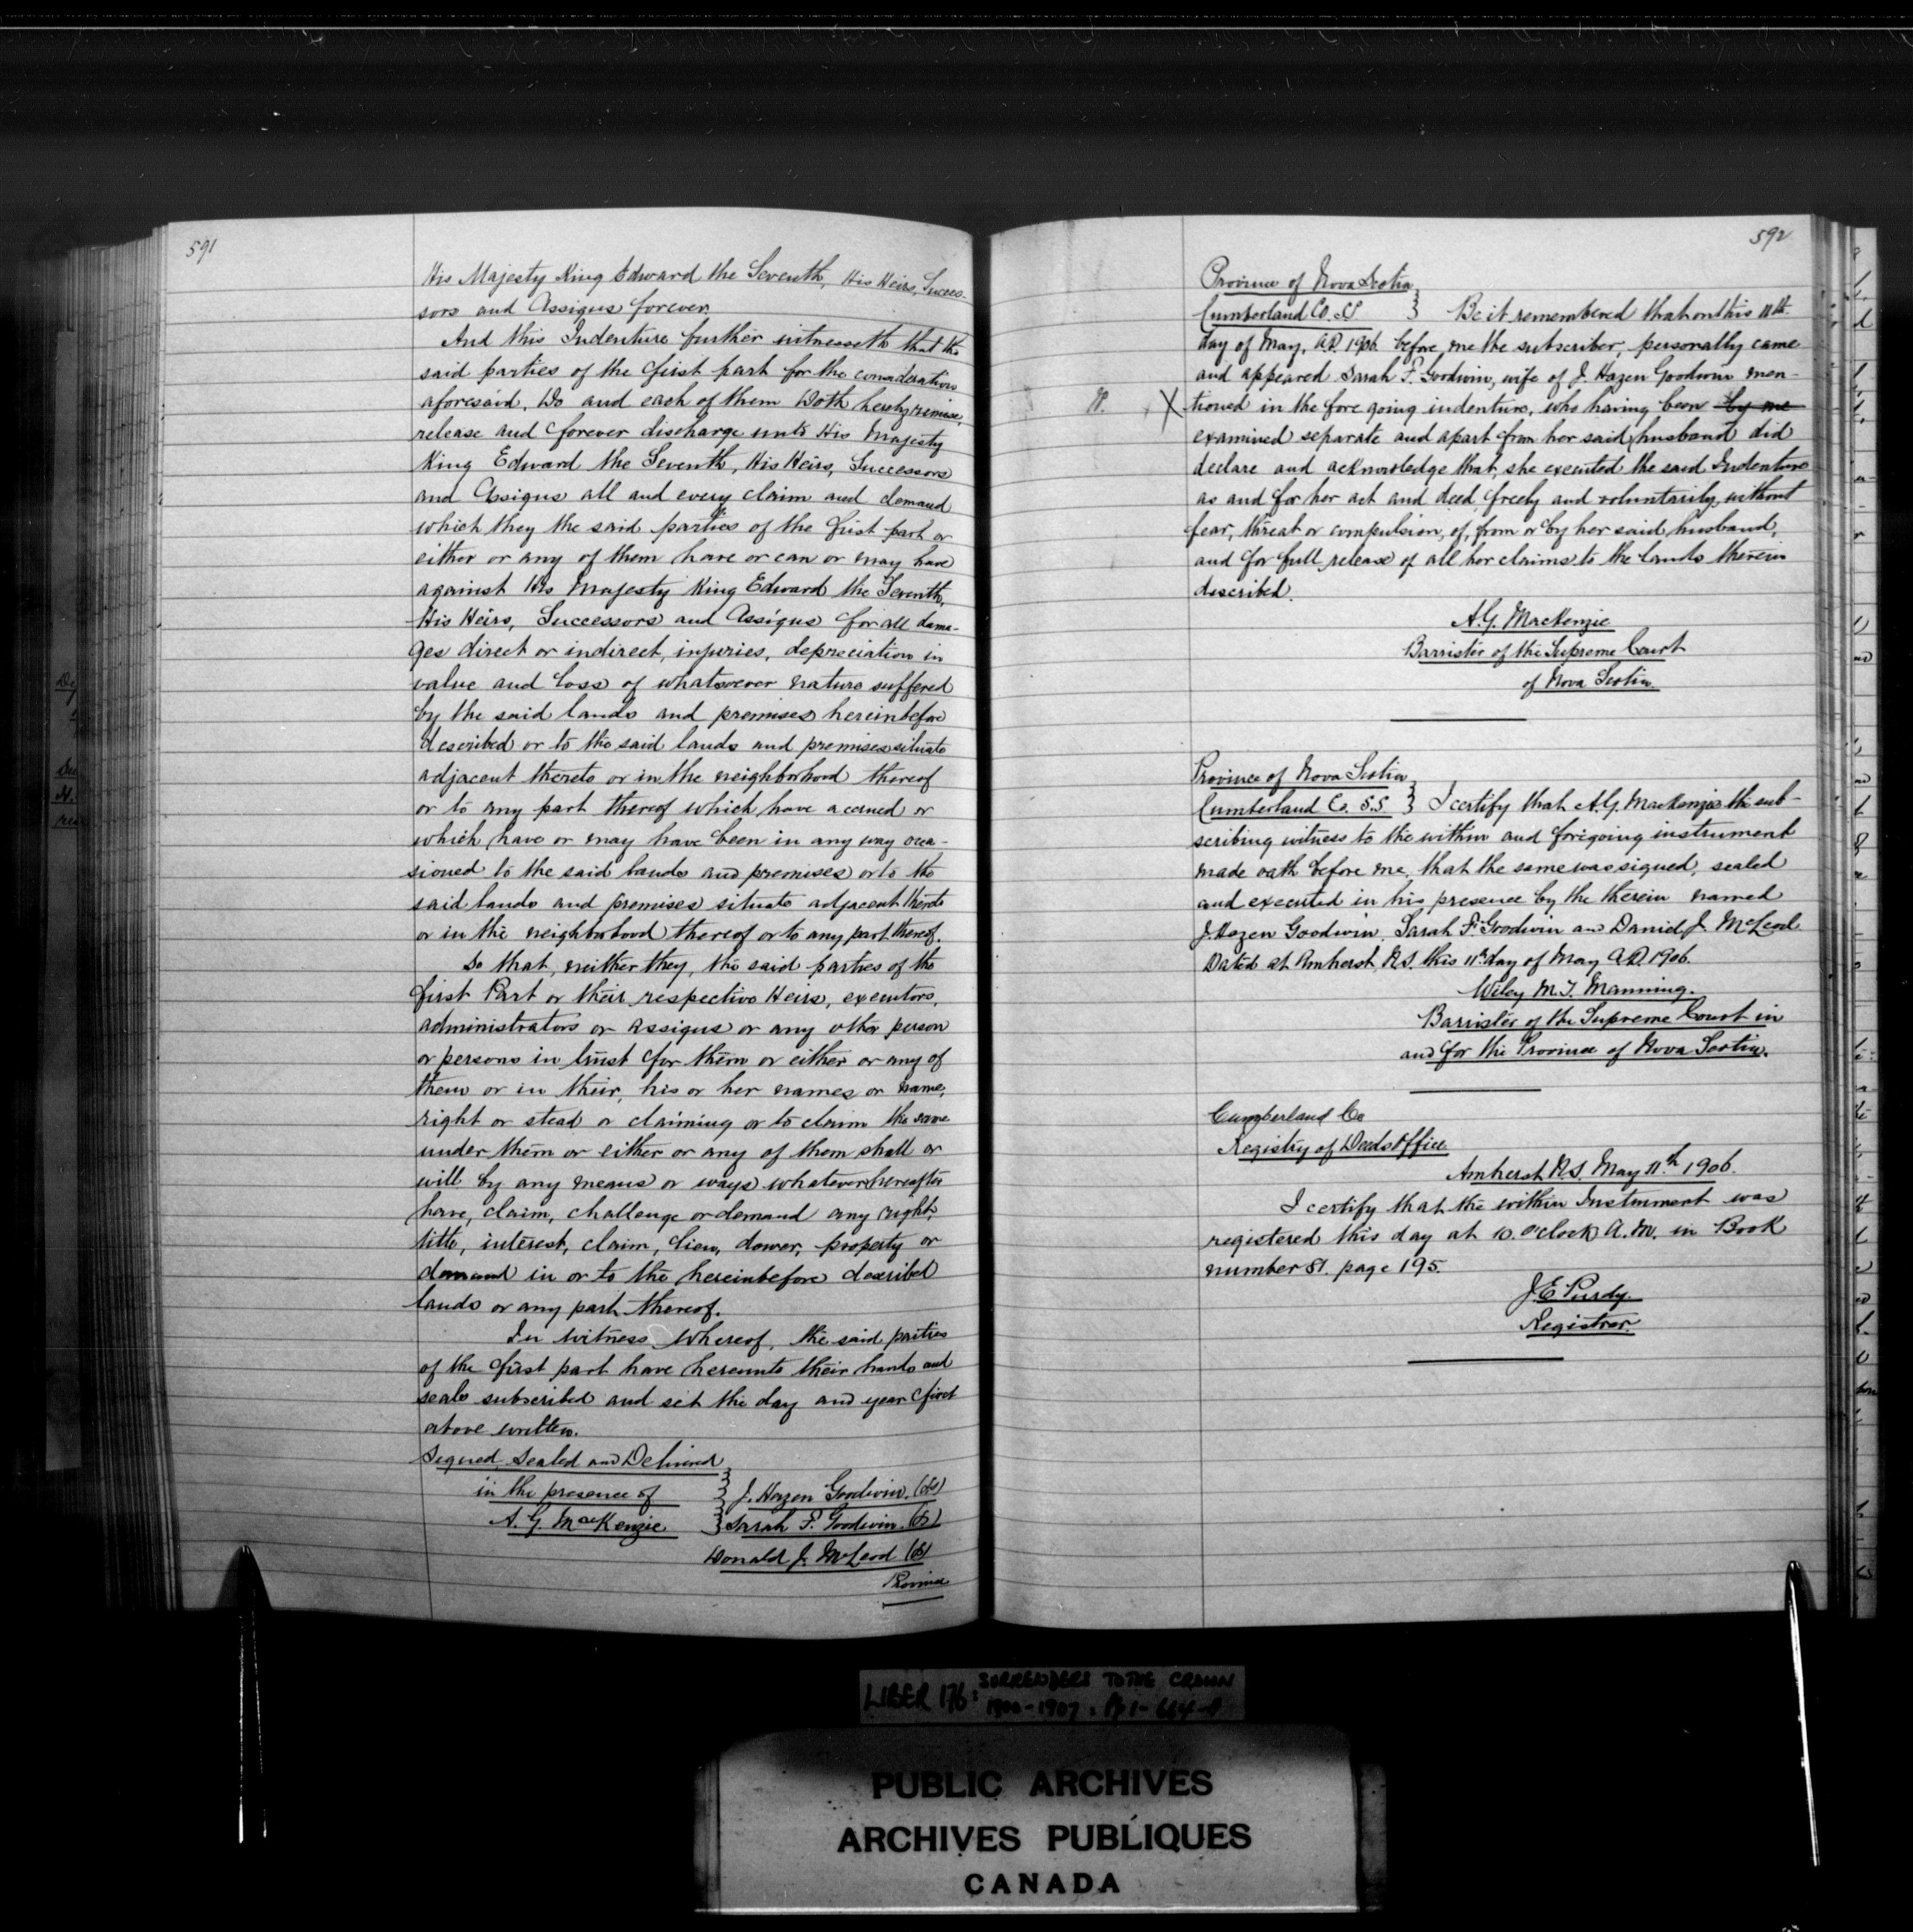 591
His Majesty King Edward the Seventh, His Heirs, Succes-
sors and Assigns forever.
And this Indenture further witnesseth that the
said parties of the first part for the consideration
aforesaid, Do and each of them Doth hereby remise,
release and forever discharge unto His Majesty
King Edward the Seventh, His Heirs, Successors
and Assigns all and every claim and demand
which they the said parties of the first part or
either or any of them have or can or may have
against His Majesty King Edward the Seventh,
His Heirs, Successors and Assigns for all dama-
ges direct or indirect, injuries, depreciation in
value and loss of whatsoever nature suffered
by the said lands and premises hereinbefore
described or to the said lands and premises situate
adjacent thereto or in the neighborhood thereof
or to any part thereof which have accrued or
which have or may have been in any way occa-
sioned to the said lands and premises or to the
said lands and premises situate adjacent thereto
or in the neighborhood thereof or to any part thereof.
So that, neither they, the said parties of the
first Part or their respective Heirs, executors,
administrators or assigns or any other person
or persons in trust for them or either or any of
them or in their, his or her names or name,
right or stead or claiming or to claim the same
under them or either or any of them shall or
will by any means or ways whatever hereafter
have, claim, challenge or demand any right,
title, interest, claim, lien, dower, property or
demand in or to the hereinbefore described
lands or any part thereof.
In witness whereof, the said parties
of the first part have hereunto their hands and
seals subscribed and set the day and year first
above written.
Signed, Sealed and Delivered
in the presence of } J. Hazen Goodwin. (LS)
A. G. MacKenzie } Sarah F. Goodwin. (LS)
Donald J. McLeod (LS)
Province
592
Province of Nova Scotia
Cumberland Co. SS } Be it remembered that on this 11th
day of May, A.D. 1906 before me the subscriber, personally came
and appeared Sarah F. Goodwin, wife of J. Hazen Goodwin men-
X tioned in the foregoing indenture, who having been by me
examined separate and apart from her said husband did
declare and acknowledge that she executed the said Indenture
as and for her act and deed, freely and voluntarily, without
fear, threat or compulsion, of, from or by her said husband,
and for full release of all her claims to the lands therein
described.
A.G. MacKenzie
Barrister of the Supreme Court
of Nova Scotia.
Province of Nova Scotia
Cumberland Co. S.S } I certify that A.G. MacKenzie the sub-
scribing witness to the within and foregoing instrument
made oath before me, that the same was signed, sealed
and executed in his presence by the therein named
J. Hazen Goodwin, Sarah F. Goodwin and Daniel J. McLeod
Dated at Amherst, N.S. this 11th day of May A.D. 1906.
Wiley M. F. Manning.
Barrister of the Supreme Court in
and for the Province of Nova Scotia.
Cumberland Co
Registry of Deeds Office
Amherst N.S. May 11th 1906.
I certify that the within Instrument was
registered this day at 10. o'clock A.M. in Book
number 81. page 195.
J E Purdy.
Registrar.
LIBER 176: SURRENDERS TO THE CROWN
1900-1907: Pp 1-664-A
PUBLIC ARCHIVES
ARCHIVES PUBLIQUES
CANADA